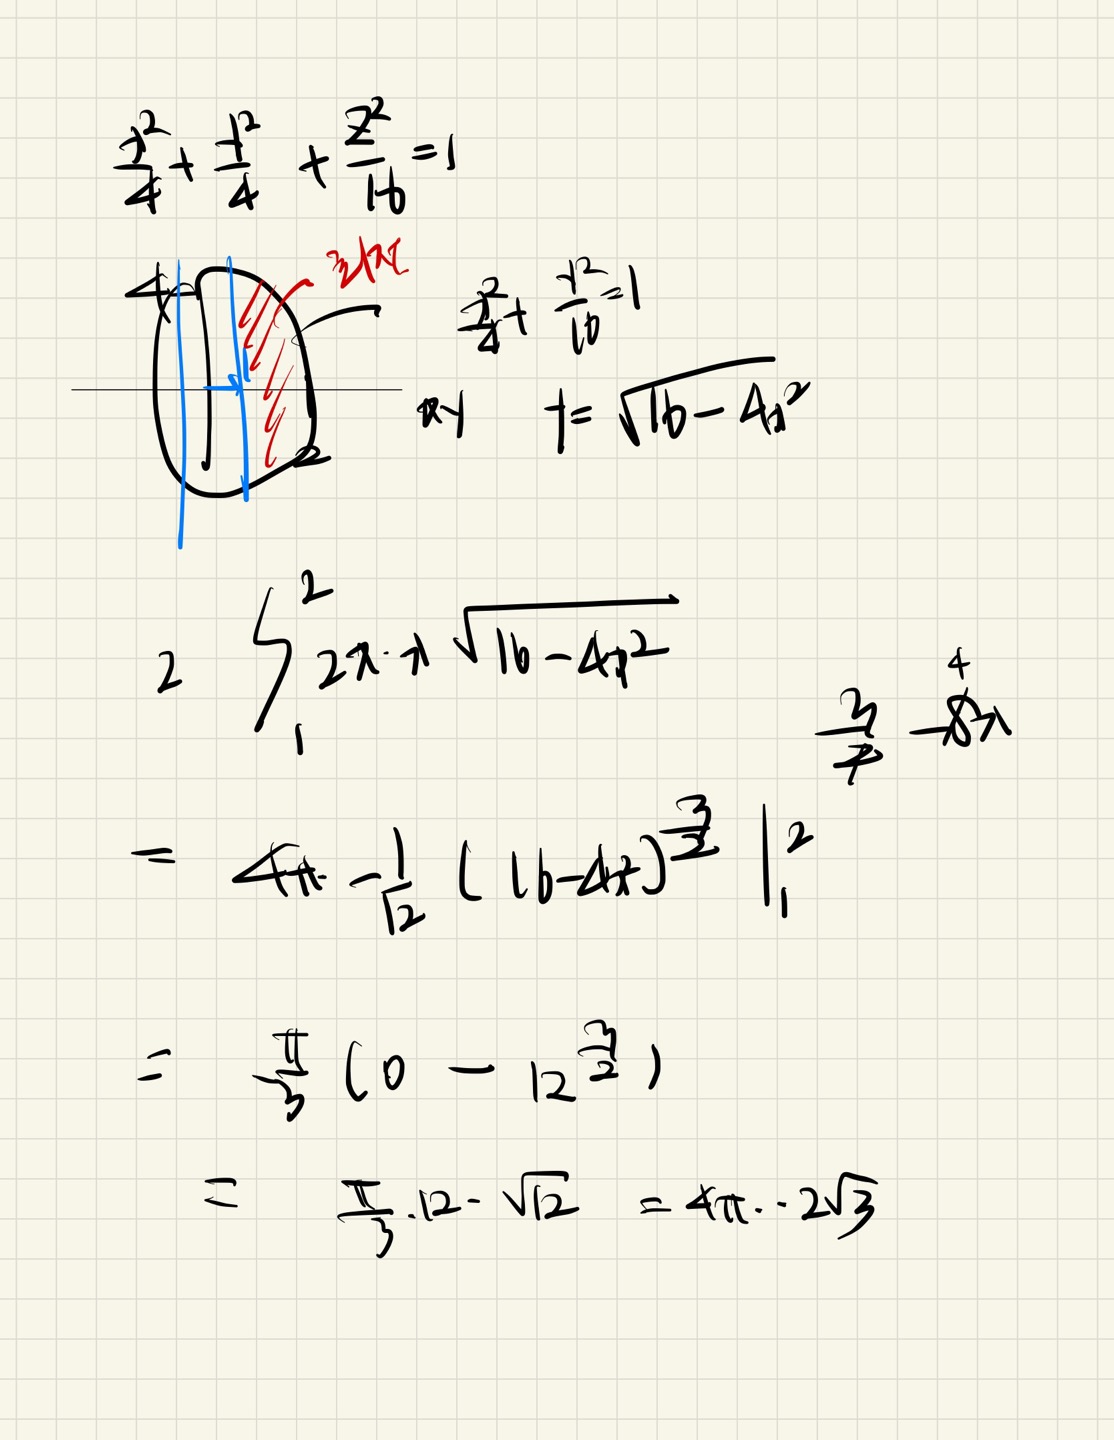 x²/4 + y²/4 + z²/16 = 1
4
x²/4 + y²/16 = 1
1
2
xy y = √(16 - 4x²)
2 ∫₁² 2π · x √(16 - 4x²)
3/2 -8x
4
= 4π · -1/12 (16 - 4x²)^(3/2) |₁²
= -π/3 (0 - 12^(3/2))
= π/3 · 12 · √12 = 4π · 2√3